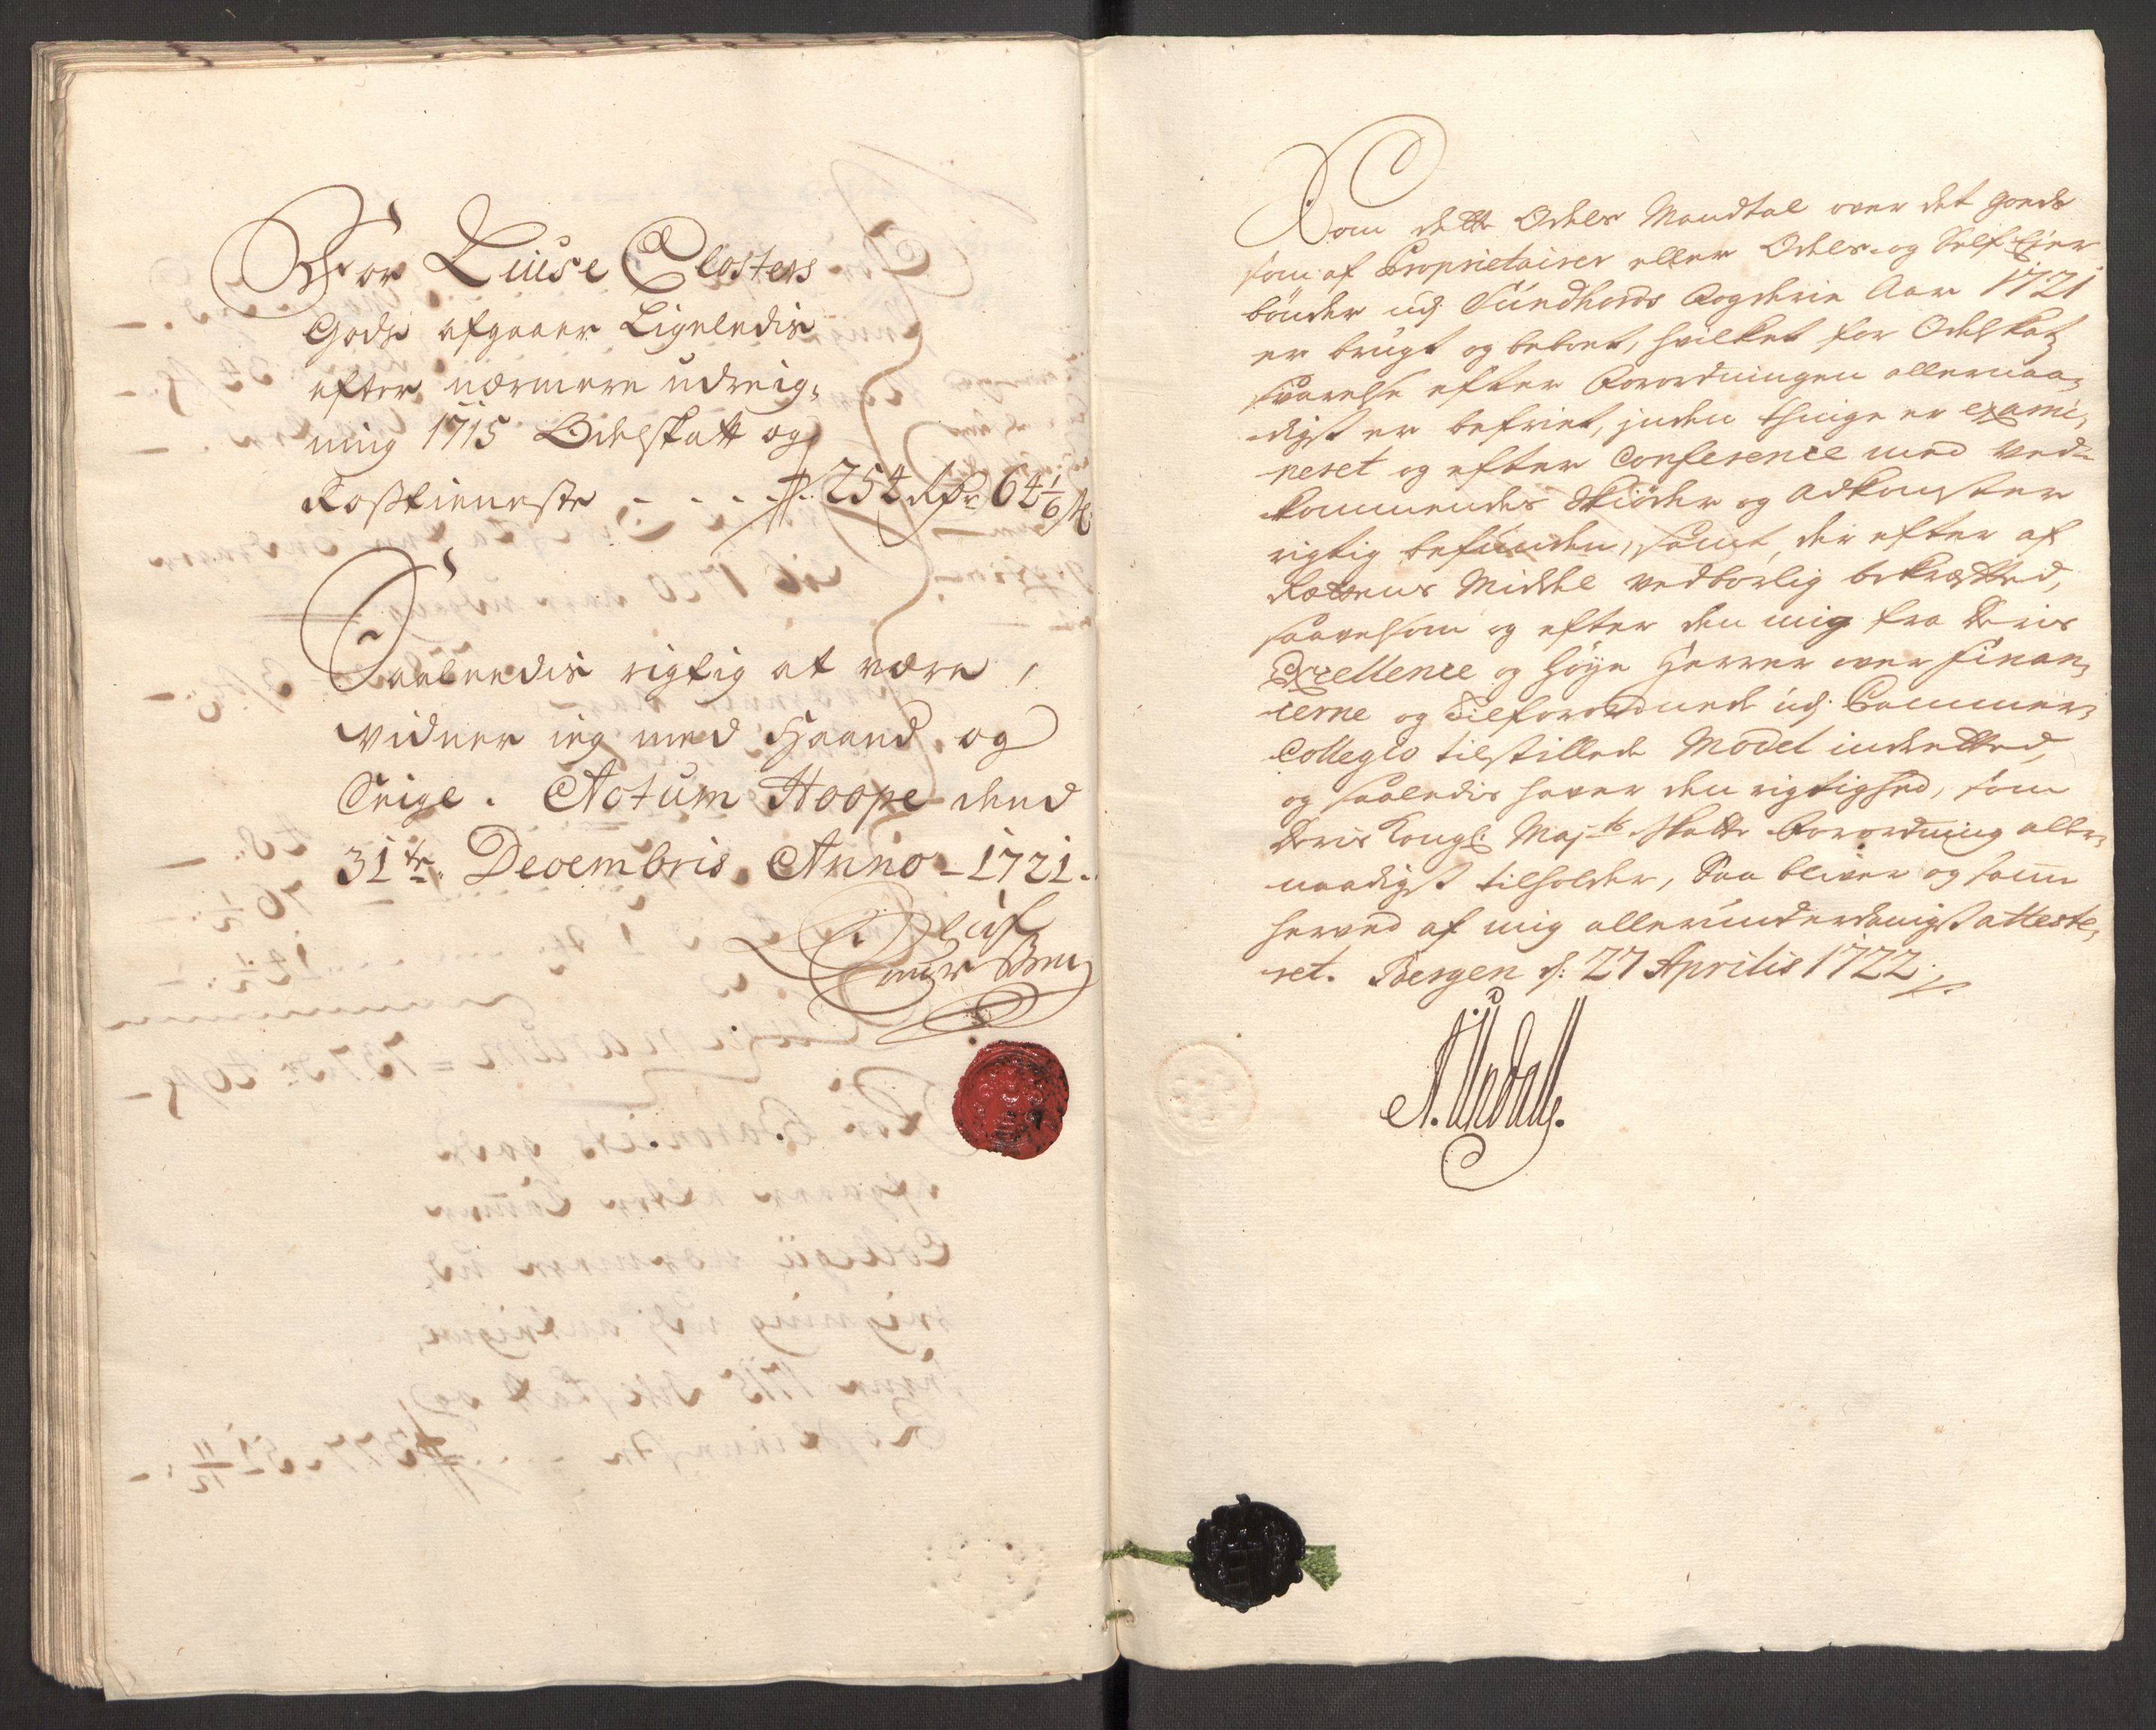 For Liuse Closters
Gods afgaaer Ligeledis
efter nærmere udreig,
ning 1715 Odelskatt og
Rostieneste - - - - 254 Rdr 64 1/6 s
Saaleedis rigtig at være,
vidner ieg med Haand og
Seigl. Actum Hoope dend
31te Decembris Anno - 1721.
Som dette Odels Mandtal over det Goeds
som af Proprietairer eller Odels- og Self Eier
bønder udj Sundhords Fogderie Aar 1721
er brugt og beboet, hvilket for Odelskatz
svarelse efter Forordningen allernaa,
digst er befriet, inden thinge er exami,
neret og efter Conference med Ved-
kommendes Skiøder og Adkomster
rigtig befunden, samt der efter af
Rættens Middel vedbørlig bekræfted,
saavelsom og efter den mig fra Deris
Excellence og høye Herrer over Finan,
cerne og Tilforordnede udj Cammer,
Collegio tilstillede Model indretted,
og saaledis haver den rigtighed, som
Deris Kongl. Majts Skatte Forordning aller,
naadigst tilholder, Saa bliver og samme
herved af mig allerunderdanigst atteste,
ret. Bergen d: 27 Aprilis 1722
A. Undall.